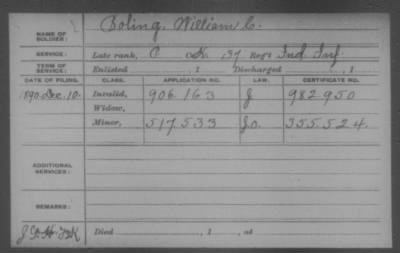 NAME OF SOLDIER: Boling, William C.
SERVICE: Late rank, Co K, 137 Reg't Ind. Inf.
TERM OF SERVICE: Enlisted , 1 Discharged , 1
DATE OF FILING. CLASS. APPLICATION NO. LAW. CERTIFICATE NO.
1890 Dec. 10. Invalid, 906 163 J 982 950
Widow,
Minor, 517.533 Jo. 355.524.
ADDITIONAL SERVICES:
REMARKS:
Died , 1 , at